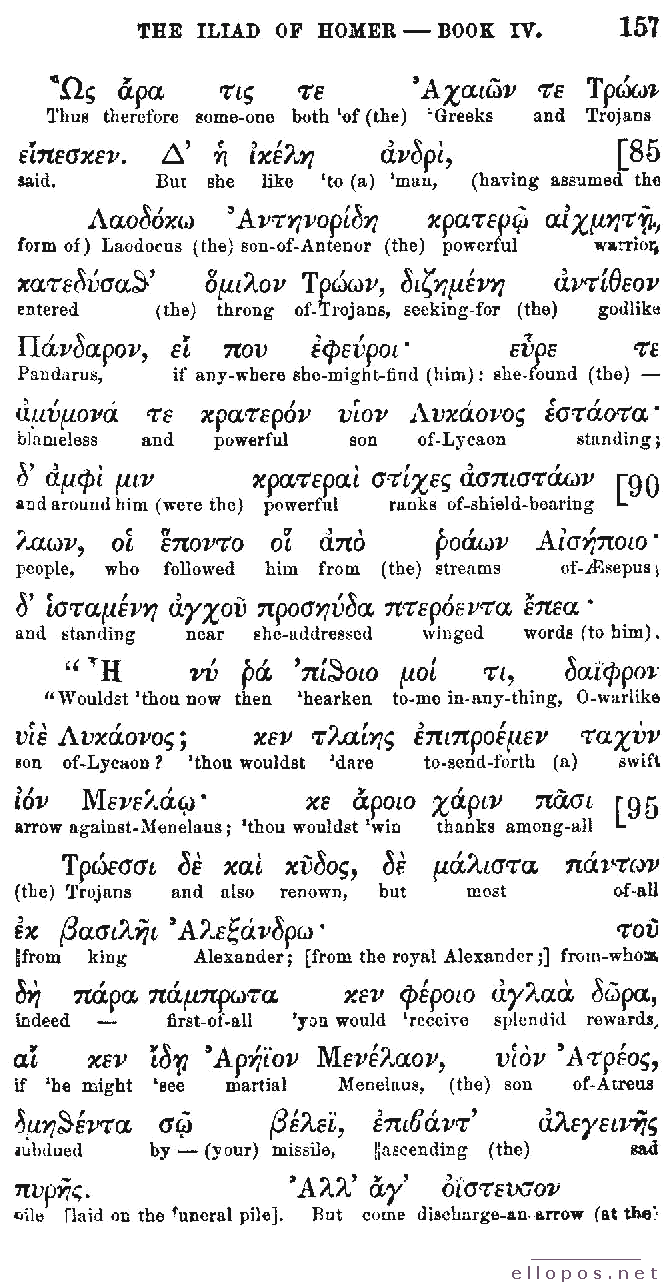 THE ILIAD OF HOMER — BOOK IV. 157
Ὣς ἄρα τις τε Ἀχαιῶν τε Τρώων
Thus therefore some-one both 'of (the) 'Greeks and Trojans
εἴπεσκεν. Δ' ἡ ἰκέλη ἀνδρὶ, [85
said. But she like 'to (a) 'man, (having assumed the
Λαοδόκῳ Ἀντηνορίδῃ κρατερῷ αἰχμητῇ,
form of) Laodocus (the) son-of-Antenor (the) powerful warrior,
κατεδύσαθ' ὅμιλον Τρώων, διζημένη ἀντίθεον
entered (the) throng of-Trojans, seeking-for (the) godlike
Πάνδαρον, εἴ που ἐφεύροι· εὗρε τε
Pandarus, if any-where she-might-find (him): she-found (the) —
ἀμύμονά τε κρατερόν υἷον Λυκάονος ἑστάοτα·
blameless and powerful son of-Lycaon standing;
δ' ἀμφὶ μιν κρατεραὶ στίχες ἀσπιστάων [90
and around him (were the) powerful ranks of-shield-bearing
λαων, οἱ ἕποντο οἷ ἀπὸ ῥοάων Αἰσήποιο·
people, who followed him from (the) streams of-Æsepus;
δ' ἱσταμένη ἀγχοῦ προσηύδα πτερόεντα ἔπεα·
and standing near she-addressed winged words (to him).
“Ἦ νύ ῥά 'πίθοιο μοί τι, δαΐφρον
“Wouldst 'thou now then 'hearken to-me in-any-thing, O-warlike
υἱὲ Λυκάονος; κεν τλαίης ἐπιπροέμεν ταχὺν
son of-Lycaon? 'thou wouldst 'dare to-send-forth (a) swift
ἰόν Μενελάῳ· κε ἄροιο χάριν πᾶσι [95
arrow against-Menelaus; 'thou wouldst 'win thanks among-all
Τρώεσσι δὲ καὶ κῦδος, δὲ μάλιστα πάντων
(the) Trojans and also renown, but most of-all
ἐκ βασιλῆι Ἀλεξάνδρῳ· τοῦ
‖from king Alexander; [from the royal Alexander;] from-whom,
δὴ πάρα πάμπρωτα κεν φέροιο ἀγλαὰ δῶρα,
indeed — first-of-all 'you would 'receive splendid rewards,
αἴ κεν ἴδῃ Ἀρήϊον Μενέλαον, υἱὸν Ἀτρέος,
if 'he might 'see martial Menelaus, (the) son of-Atreus
δμηθέντα σῷ βέλεϊ, ἐπιβάντ' ἀλεγεινῆς
subdued by — (your) missile, ‖ascending (the) sad
πυρῆς. Ἀλλ' ἄγ' ὀΐστευσον
pile [laid on the funeral pile]. But come discharge-an-arrow (at the)
ellopos.net